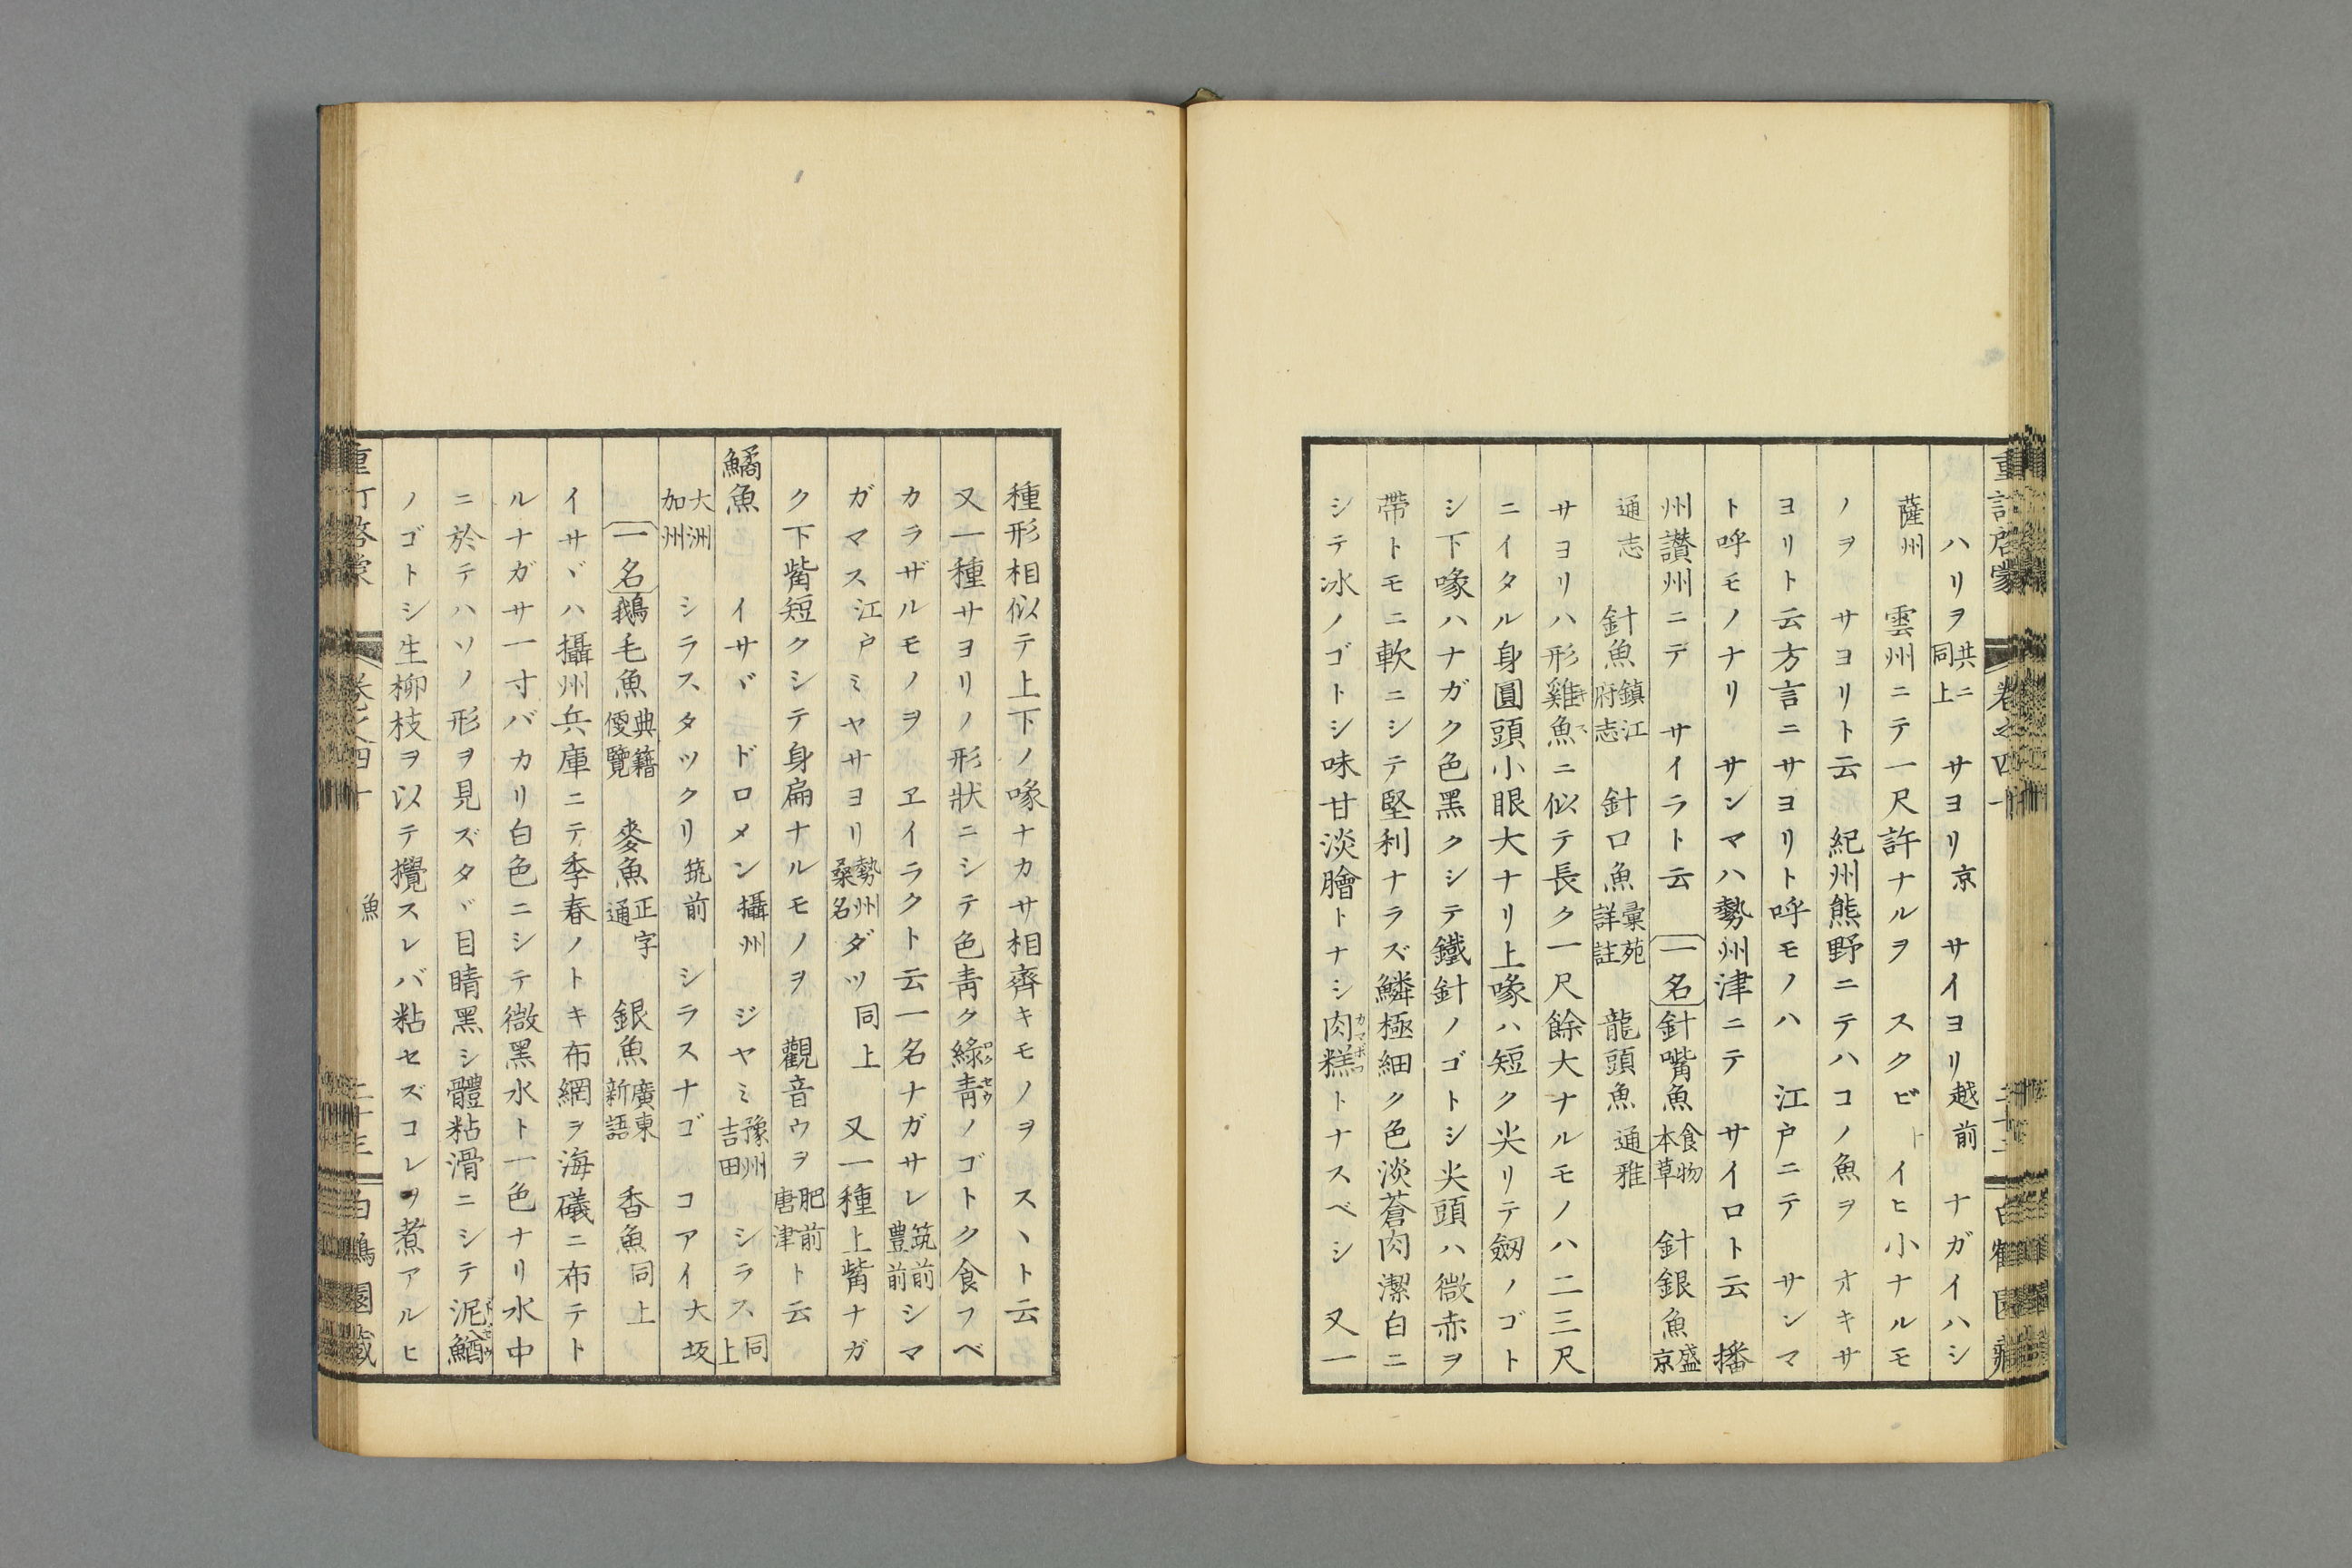 重訂啓蒙 卷之四十 二十三 白鶴園藏
ハリヲ共ニ同上 サヨリ京 サイヨリ越前 ナガイハシ
薩州 雲州ニテ一尺許ナルヲ スクビトイヒ小ナルモ
ノヲ サヨリト云 紀州熊野ニテハコノ魚ヲ オキサ
ヨリト云方言ニサヨリト呼モノハ 江戸ニテ サンマ
ト呼モノナリ サンマハ勢州津ニテ サイロト云 播
州讃州ニテ サイラト云 一名針嘴魚食物本草 針銀魚盛京
通志 針魚鎮江府志 針口魚彙苑詳註 龍頭魚通雅
サヨリハ形雞魚ニ似テ長ク一尺餘大ナルモノハ二三尺
ニイタル身圓頭小眼大ナリ上喙ハ短ク尖リテ劔ノゴト
シ下喙ハナガク色黑クシテ鐵針ノゴトシ尖頭ハ微赤ヲ
帶トモニ軟ニシテ堅利ナラズ鱗極細ク色淡蒼肉潔白ニ
シテ冰ノゴトシ味甘淡膾トナシ肉糕カマボコトナスベシ 又一
種形相似テ上下ノ喙ナカサ相齊キモノヲ スヽト云
又一種サヨリノ形狀ニシテ色靑ク綠靑ロクセウノゴトク食フベ
カラザルモノヲ ヱイラクト云一名ナガサレ筑前豊前シマ
ガマス江戸ミヤサヨリ勢州桑名ダツ同上 又一種上觜ナガ
ク下觜短クシテ身扁ナルモノヲ 觀音ウヲ肥前唐津ト云
鱊魚 イサヾ ドロメン攝州 ジヤミ豫州吉田 シラス同上
大洲加州 シラスタツクリ筑前 シラスナゴ コアイ大坂
一名鵝毛魚典籍便覽 麥魚正字通 銀魚廣東新語 香魚同上
イサヾハ攝州兵庫ニテ季春ノトキ布網ヲ海礒ニ布テト
ルナガサ一寸バカリ白色ニシテ微黑水ト一色ナリ水中
ニ於テハソノ形ヲ見ズタヾ目睛黑シ體粘滑ニシテ泥鰌ドゼウ
ノゴトシ生柳枝ヲ以テ攪スレバ粘セズコレヲ煮アルヒ
重訂啓蒙 卷之四十 魚 二十三 白鶴園藏